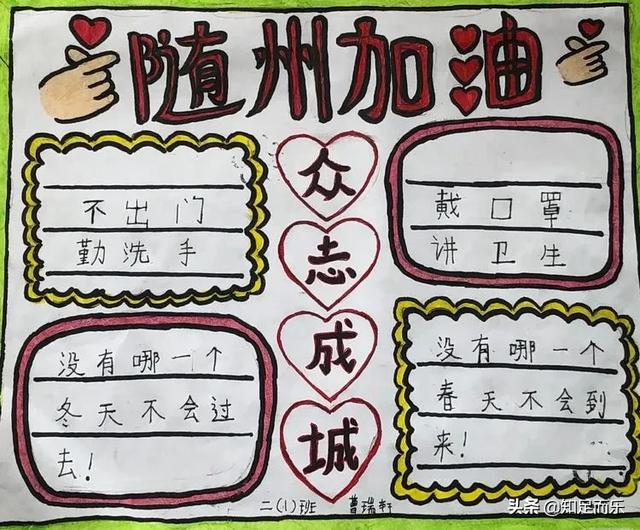 随州加油
不出门
勤洗手
众
志
成
城
戴口罩
讲卫生
没有哪一个
冬天不会过
去!
没有哪一个
春天不会到
来!
二(1)班 曹瑞轩
头条 @知足而乐